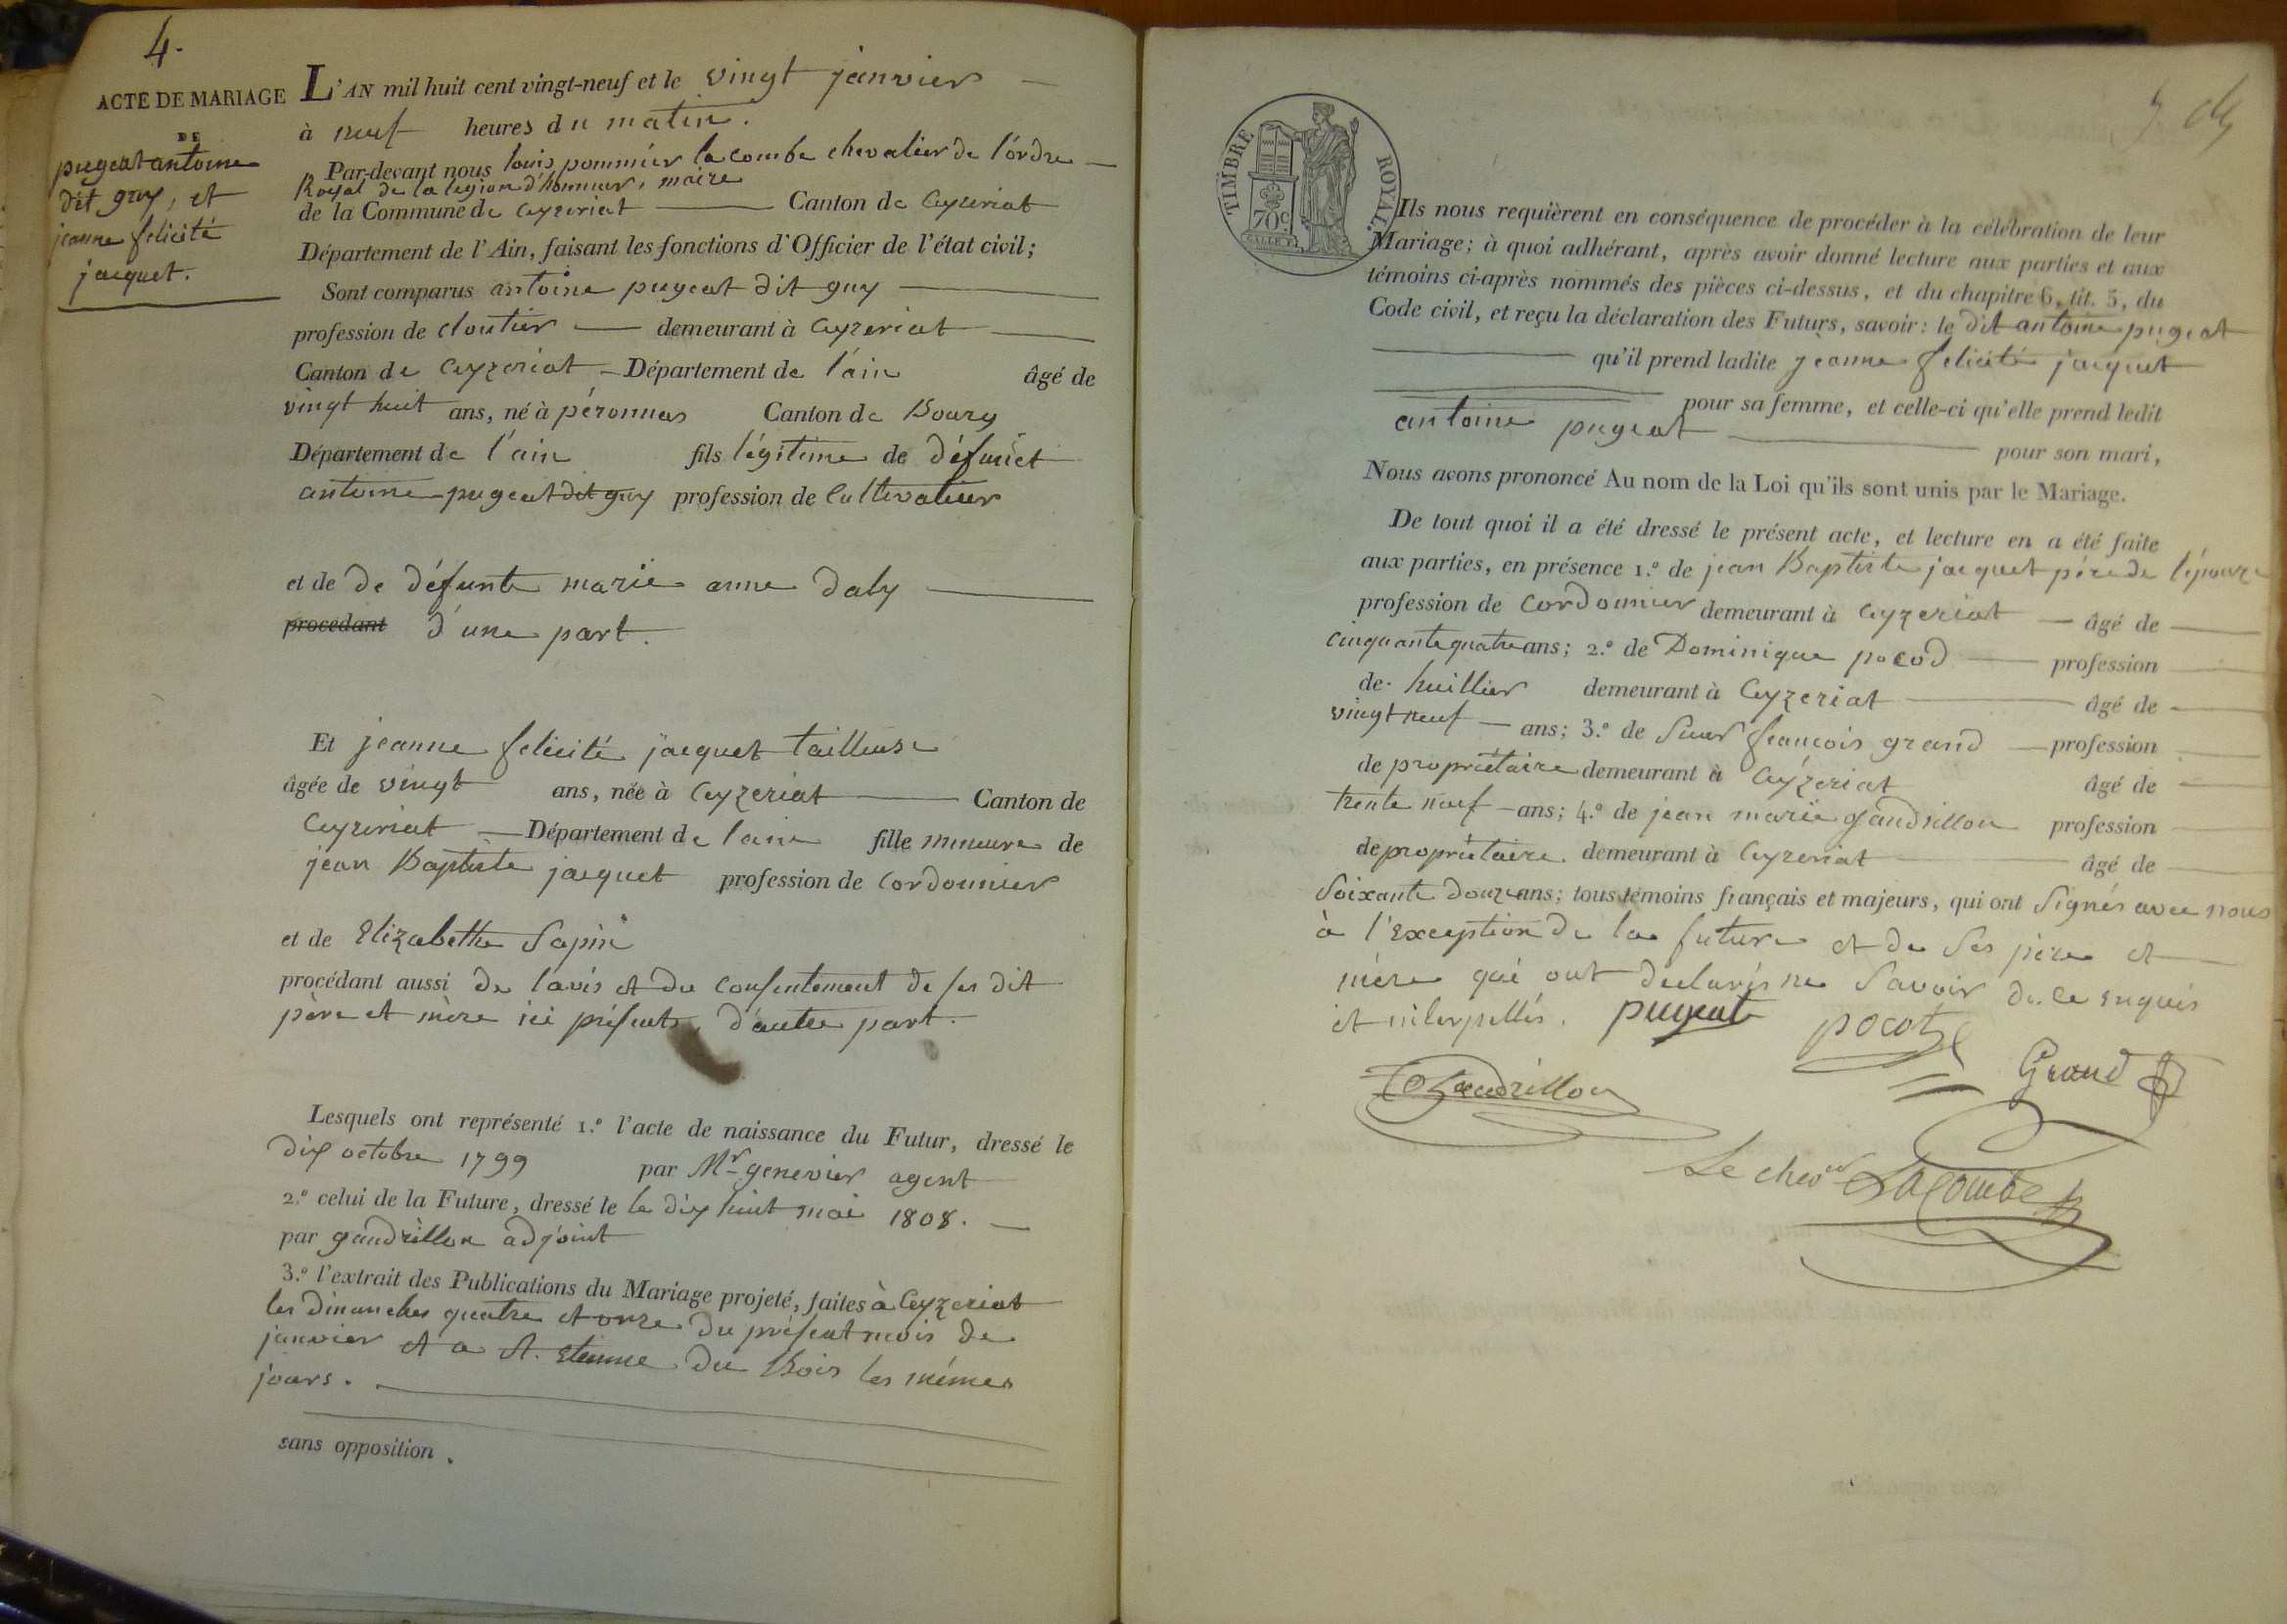 4.
ACTE DE MARIAGE
DE
pugeat antoine
dit guy, et
jeanne felicité
jacquet.
L'AN mil huit cent vingt-neuf et le vingt janvier
à neuf heures du matin.
Par-devant nous louis pommier lacombe chevalier de l'ordre
Royal de la legion d'honneur, maire
de la Commune de Ceyzeriat Canton de Ceyzeriat
Département de l'Ain, faisant les fonctions d'Officier de l'état civil;
Sont comparus antoine pugeat dit guy
profession de cloutier demeurant à Ceyzeriat
Canton de Ceyzeriat Département de l'ain âgé de
vingt huit ans, né à péronnas Canton de Bourg
Département de l'ain fils légitime de défunct
antoine pugeat dit guy profession de Cultivateur
et de de défunte marie anne daly
procédant d'une part.
Et jeanne felicité jacquet tailleuse
âgée de vingt ans, née à Ceyzeriat Canton de
Ceyzeriat Département de l'ain fille mineure de
jean Baptiste jacquet profession de Cordonnier
et de Elizabethe Sapin
procédant aussi de l'avis et du consentement de ses dit
père et mère ici présents, d'autre part.
Lesquels ont représenté 1.º l'acte de naissance du Futur, dressé le
dix octobre 1799 par Mr genevier agent
2.º celui de la Future, dressé le le dix huit mai 1808.
par gaudrillon adjoint
3.º l'extrait des Publications du Mariage projeté, faites à Ceyzeriat
les dimanches quatre et onze du présent mois de
janvier et a st. Etienne du Bois les mêmes
jours.
sans opposition.
TIMBRE ROYAL.
70c.
Ils nous requièrent en conséquence de procéder à la célébration de leur
Mariage; à quoi adhérant, après avoir donné lecture aux parties et aux
témoins ci-après nommés des pièces ci-dessus, et du chapitre 6, tit. 5, du
Code civil, et reçu la déclaration des Futurs, savoir: le dit antoine pugeat
qu'il prend ladite jeanne felicité jacquet
pour sa femme, et celle-ci qu'elle prend ledit
antoine pugeat
pour son mari,
Nous avons prononcé Au nom de la Loi qu'ils sont unis par le Mariage.
De tout quoi il a été dressé le présent acte, et lecture en a été faite
aux parties, en présence 1.º de jean Baptiste jacquet père de l'épouze
profession de Cordonnier demeurant à Ceyzeriat âgé de
cinquante quatre ans; 2.º de Dominique pocod profession
de huillier demeurant à Ceyzeriat âgé de
vingt neuf ans; 3.º de Sieur francois grand profession
de propriétaire demeurant à Ceyzeriat âgé de
trente neuf ans; 4.º de jean marie gaudrillon profession
de propriétaire. demeurant à Ceyzeriat âgé de
Soixante douze ans; tous témoins français et majeurs, qui ont Signés avec nous
à l'exception de la future et de Ses père et
mère qui ont declarés ne Savoir de ce enquis
et interpellés. pugeat pocot
Grand
Gaudrillon
Le chever Lacombe